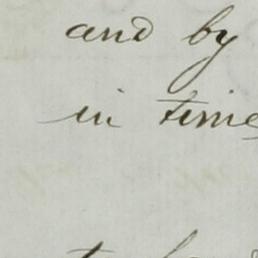 and by
in time